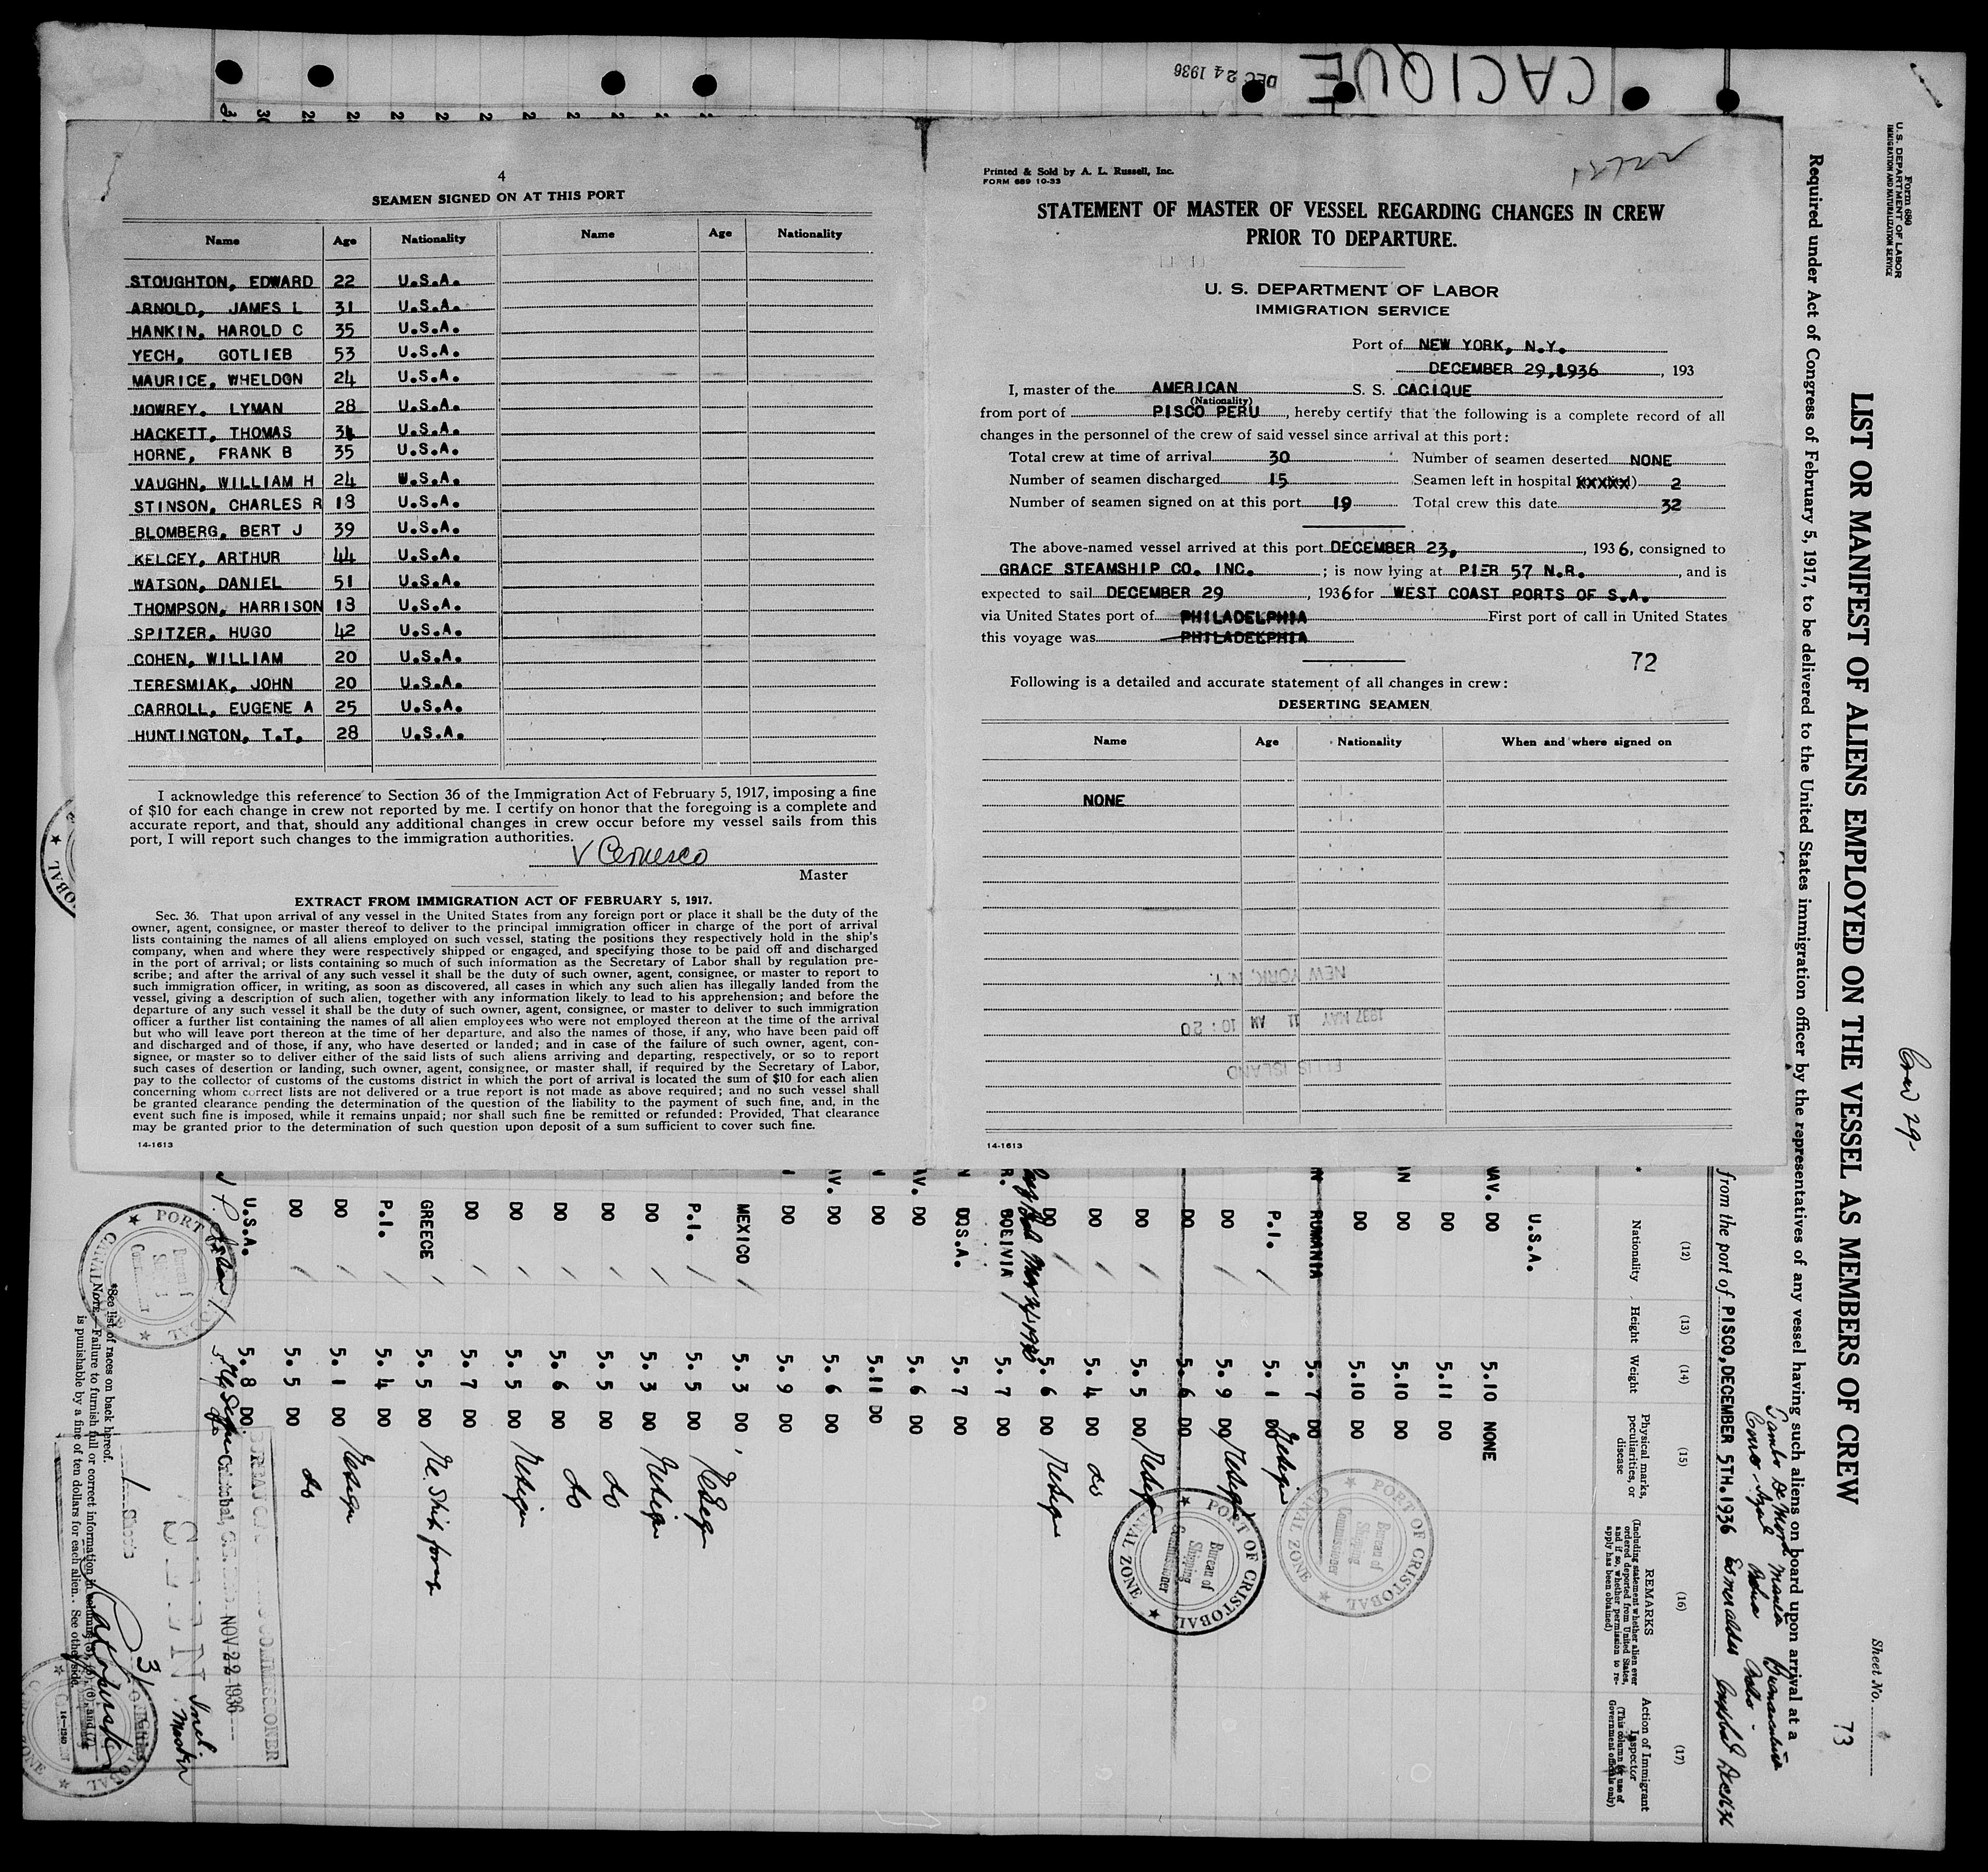 CACIQUE
DEC 24 1936
4
SEAMEN SIGNED ON AT THIS PORT
Name Age Nationality Name Age Nationality
STOUGHTON, EDWARD 22 U.S.A.
ARNOLD, JAMES L 31 U.S.A.
HANKIN, HAROLD C 35 U.S.A.
YECH, GOTLIEB 53 U.S.A.
MAURICE, WHELDON 24 U.S.A.
MOWREY, LYMAN 28 U.S.A.
HACKETT, THOMAS U.S.A.
HORNE, FRANK B 35 U.S.A.
VAUGHN, WILLIAM H 24 U.S.A.
STINSON, CHARLES R 18 U.S.A.
BLOMBERG, BERT J 39 U.S.A.
KELCEY, ARTHUR 44 U.S.A.
WATSON, DANIEL 51 U.S.A.
THOMPSON, HARRISON 18 U.S.A.
SPITZER, HUGO 42 U.S.A.
COHEN, WILLIAM 20 U.S.A.
TERESMIAK, JOHN 20 U.S.A.
CARROLL, EUGENE A 25 U.S.A.
HUNTINGTON, T.T. 28 U.S.A.
I acknowledge this reference to Section 36 of the Immigration Act of February 5, 1917, imposing a fine
of $10 for each change in crew not reported by me. I certify on honor that the foregoing is a complete and
accurate report, and that, should any additional changes in crew occur before my vessel sails from this
port, I will report such changes to the immigration authorities.
Master
EXTRACT FROM IMMIGRATION ACT OF FEBRUARY 5, 1917.
Sec. 36. That upon arrival of any vessel in the United States from any foreign port or place it shall be the duty of the
owner, agent, consignee, or master thereof to deliver to the principal immigration officer in charge of the port of arrival
lists containing the names of all aliens employed on such vessel, stating the positions they respectively hold in the ship's
company, when and where they were respectively shipped or engaged, and specifying those to be paid off and discharged
in the port of arrival; or lists containing so much of such information as the Secretary of Labor shall by regulation pre-
scribe; and after the arrival of any such vessel it shall be the duty of such owner, agent, consignee, or master to report to
such immigration officer, in writing, as soon as discovered, all cases in which any such alien has illegally landed from the
vessel, giving a description of such alien, together with any information likely to lead to his apprehension; and before the
departure of any such vessel it shall be the duty of such owner, agent, consignee, or master to deliver to such immigration
officer a further list containing the names of all alien employees who were not employed thereon at the time of the arrival
but who will leave port thereon at the time of her departure, and also the names of those, if any, who have been paid off
and discharged and of those, if any, who have deserted or landed; and in case of the failure of such owner, agent, con-
signee, or master so to deliver either of the said lists of such aliens arriving and departing, respectively, or so to report
such cases of desertion or landing, such owner, agent, consignee, or master shall, if required by the Secretary of Labor,
pay to the collector of customs of the customs district in which the port of arrival is located the sum of $10 for each alien
concerning whom correct lists are not delivered or a true report is not made as above required; and no such vessel shall
be granted clearance pending the determination of the question of the liability to the payment of such fine, and, in the
event such fine is imposed, while it remains unpaid; nor shall such fine be remitted or refunded: Provided, That clearance
may be granted prior to the determination of such question upon deposit of a sum sufficient to cover such fine.
14-1613
Printed & Sold by A. L. Russell, Inc.
FORM 689 10-33
STATEMENT OF MASTER OF VESSEL REGARDING CHANGES IN CREW
PRIOR TO DEPARTURE.
U. S. DEPARTMENT OF LABOR
IMMIGRATION SERVICE
Port of NEW YORK, N.Y.
DECEMBER 29,1936, 193
I, master of the AMERICAN S. S. CACIQUE
(Nationality)
from port of PISCO PERU, hereby certify that the following is a complete record of all
changes in the personnel of the crew of said vessel since arrival at this port:
Total crew at time of arrival 30 Number of seamen deserted NONE
Number of seamen discharged 15 Seamen left in hospital XXXXX) 2
Number of seamen signed on at this port 19 Total crew this date 32
The above-named vessel arrived at this port DECEMBER 23, 1936, consigned to
GRACE STEAMSHIP CO. INC. ; is now lying at PIER 57 N.R. , and is
expected to sail DECEMBER 29 , 1936 for WEST COAST PORTS OF S.A.
via United States port of PHILADELPHIA First port of call in United States
this voyage was PHILADELPHIA
72
Following is a detailed and accurate statement of all changes in crew:
DESERTING SEAMEN
Name Age Nationality When and where signed on
NONE
NEW YORK, N.Y.
1937 MAY 11 AM 10:20
ELLIS ISLAND
14-1613
Form 680
U. S. DEPARTMENT OF LABOR
IMMIGRATION AND NATURALIZATION SERVICE
Crew 29
Sheet No.
73
LIST OR MANIFEST OF ALIENS EMPLOYED ON THE VESSEL AS MEMBERS OF CREW
Required under Act of Congress of February 5, 1917, to be delivered to the United States immigration officer by the representatives of any vessel having such aliens on board upon arrival at a
from the port of PISCO, DECEMBER 5TH. 1936 Esmeraldas
(12) (13) (14) (15) (16) (17)
Nationality Height Weight
Physical marks, peculiarities, or disease
REMARKS
(Including statement whether alien ever
ordered deported from United States,
and if so, whether permission to re-
apply has been obtained)
Action of Immigrant
Inspector
(This column for use of
Government officials only)
U.S.A.
DO 5.10 NONE
DO 5.11 DO
DO 5.10 DO
DO 5.10 DO
RUMANIA 5.7 DO
P.I. 5.1 DO
DO 5.9 DO
DO 5.6 DO
DO 5.5 DO
DO 5.4 DO
DO 5.6 DO
BOLIVIA 5.7 DO
5.7 DO
DO 5.6 DO
DO 5.11 DO
DO 5.6 DO
DO 5.9 DO
MEXICO 5.3 DO
P.I. 5.5 DO
DO 5.3 DO
DO 5.5 DO
DO 5.6 DO
DO 5.5 DO
DO 5.7 DO
GREECE 5.5 DO
P.I. 5.4 DO
DO 5.1 DO
DO 5.5 DO
U.S.A. 5.8 DO
PORT OF CRISTOBAL
CANAL ZONE
Bureau of
Shipping
Commissioner
NOV 22 1936
SEEN
*See list of races on back hereof.
NOTE.—Failure to furnish full or correct information in columns (3), (5), (6), and (7)
is punishable by a fine of ten dollars for each alien. See other side.